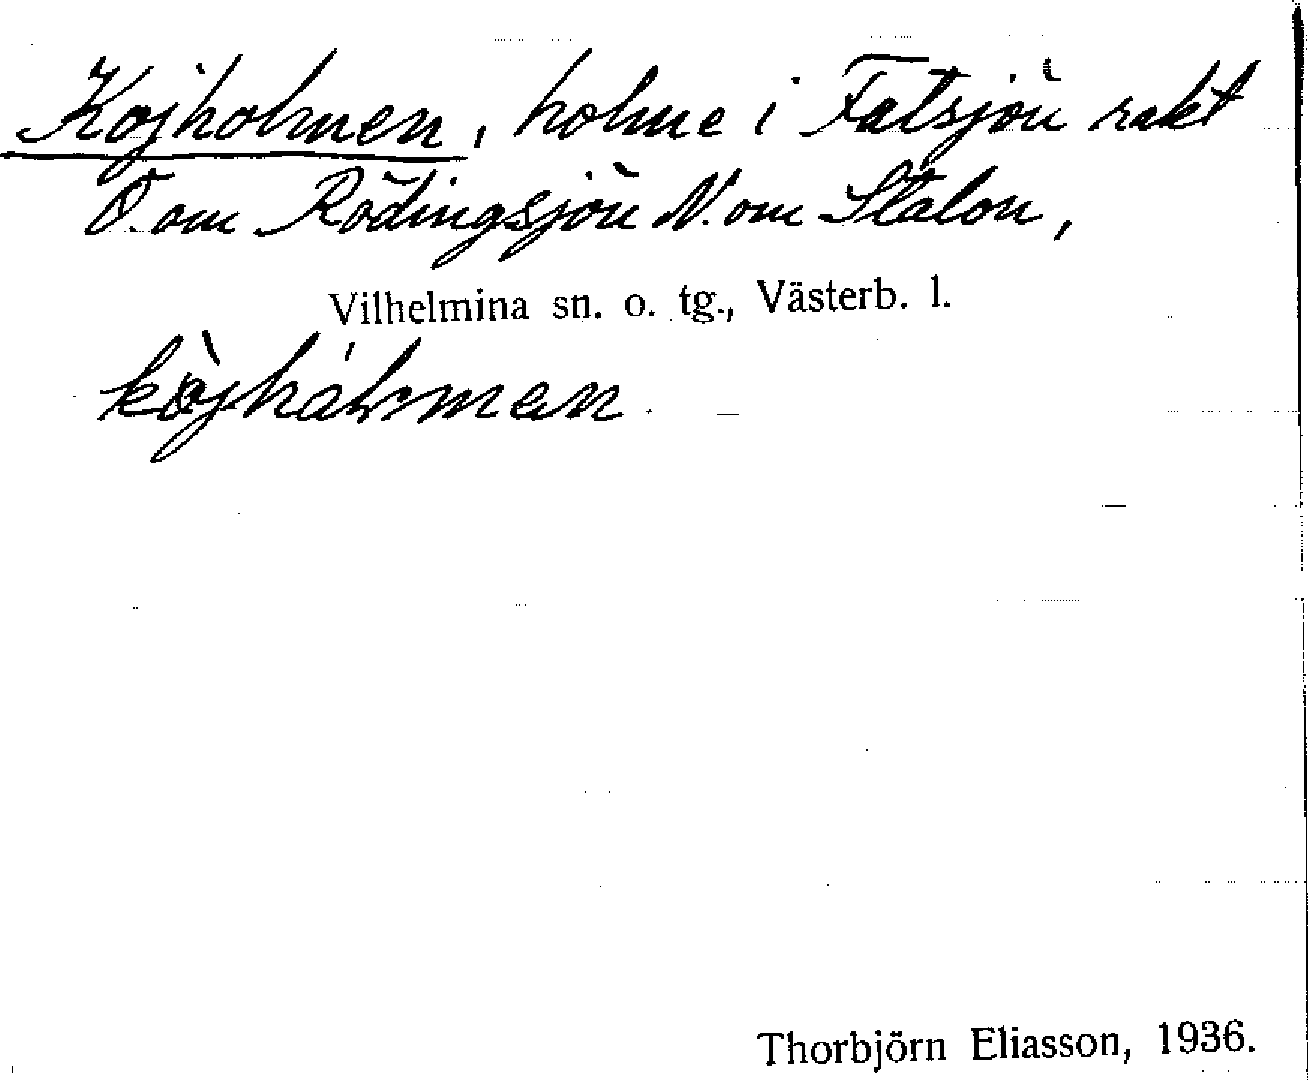 Kojholmen, holme i Fatsjön rakt
Ö. om Rödingsjön N. om Stalon,
Vilhelmina sn. o. tg., Västerb. l.
Thorbjörn Eliasson, 1936.